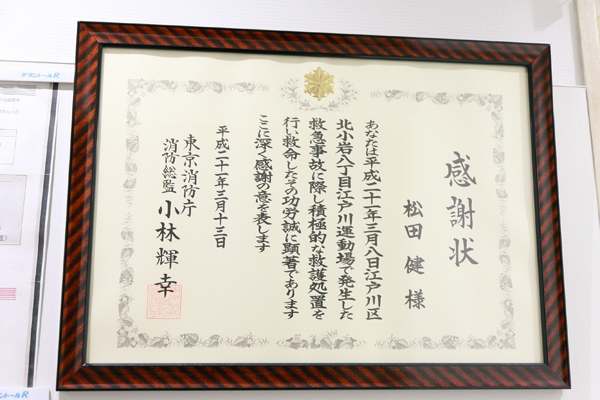 感謝状
松田 健 様
あなたは平成二十一年三月八日江戸川区
北小岩八丁目江戸川運動場で発生した
救急事故に際し積極的な救護処置を
行い救命したその功労誠に顕著であります
ここに深く感謝の意を表します
平成二十一年三月十三日
東京消防庁
消防総監 小林輝幸